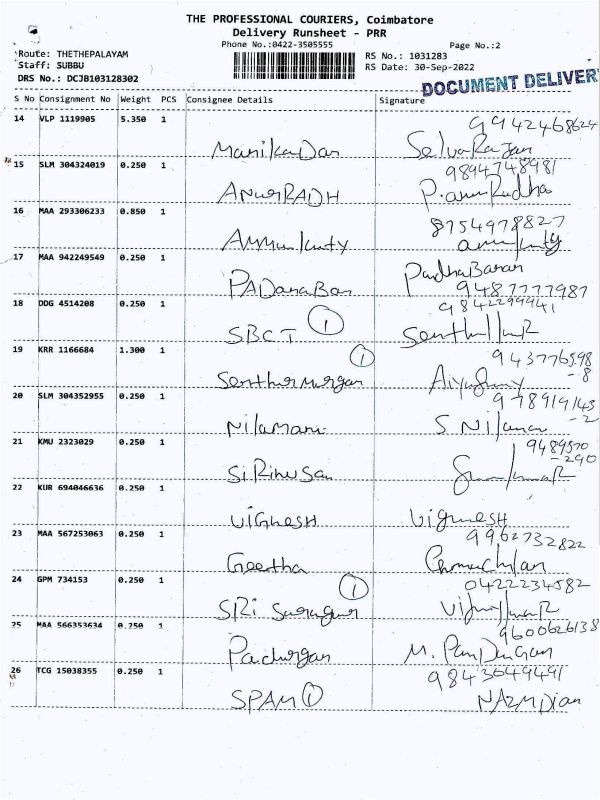 THE PROFESSIONAL COURIERS, Coimbatore
Delivery Runsheet - PRR
Phone No.:0422-3505555
Page No.:2
Route: THETHEPALAYAM
RS No.: 1031283
Staff: SUBBU
RS Date: 30-Sep-2022
DRS No.: DCJB103128302
DOCUMENT DELIVER
S No Consignment No Weight PCS Consignee Details Signature
14 VLP 1119905 5.350 1
9942468624
Manikandan Selva Rajan
15 SLM 304324019 0.250 1
9894748981
ANURADH P.anuRadha
16 MAA 293306233 0.850 1
8754978827
Ammukutty ammukutty
17 MAA 942249549 0.250 1
PADanaBan PadhaBanan
9487777987
18 DDG 4514208 0.250 1
9842299941
SBCT 1
19 KRR 1166684 1.300 1
1
943776598
-8
Senthurmurgan
20 SLM 304352955 0.250 1
978919143
-2
Nilamani S Nilamani
21 KMU 2323029 0.250 1
9489570
-290
22 KUR 694046636 0.250 1
VIGNESH VIGNESH
23 MAA 567253063 0.250 1
9962732822
Geetha
24 GPM 734153 0.250 1
1
0422234582
SRi
25 MAA 566353634 0.250 1
9600626138
M. Pandengan
26 TCG 15038355 0.250 1
9843649491
SPAM 1